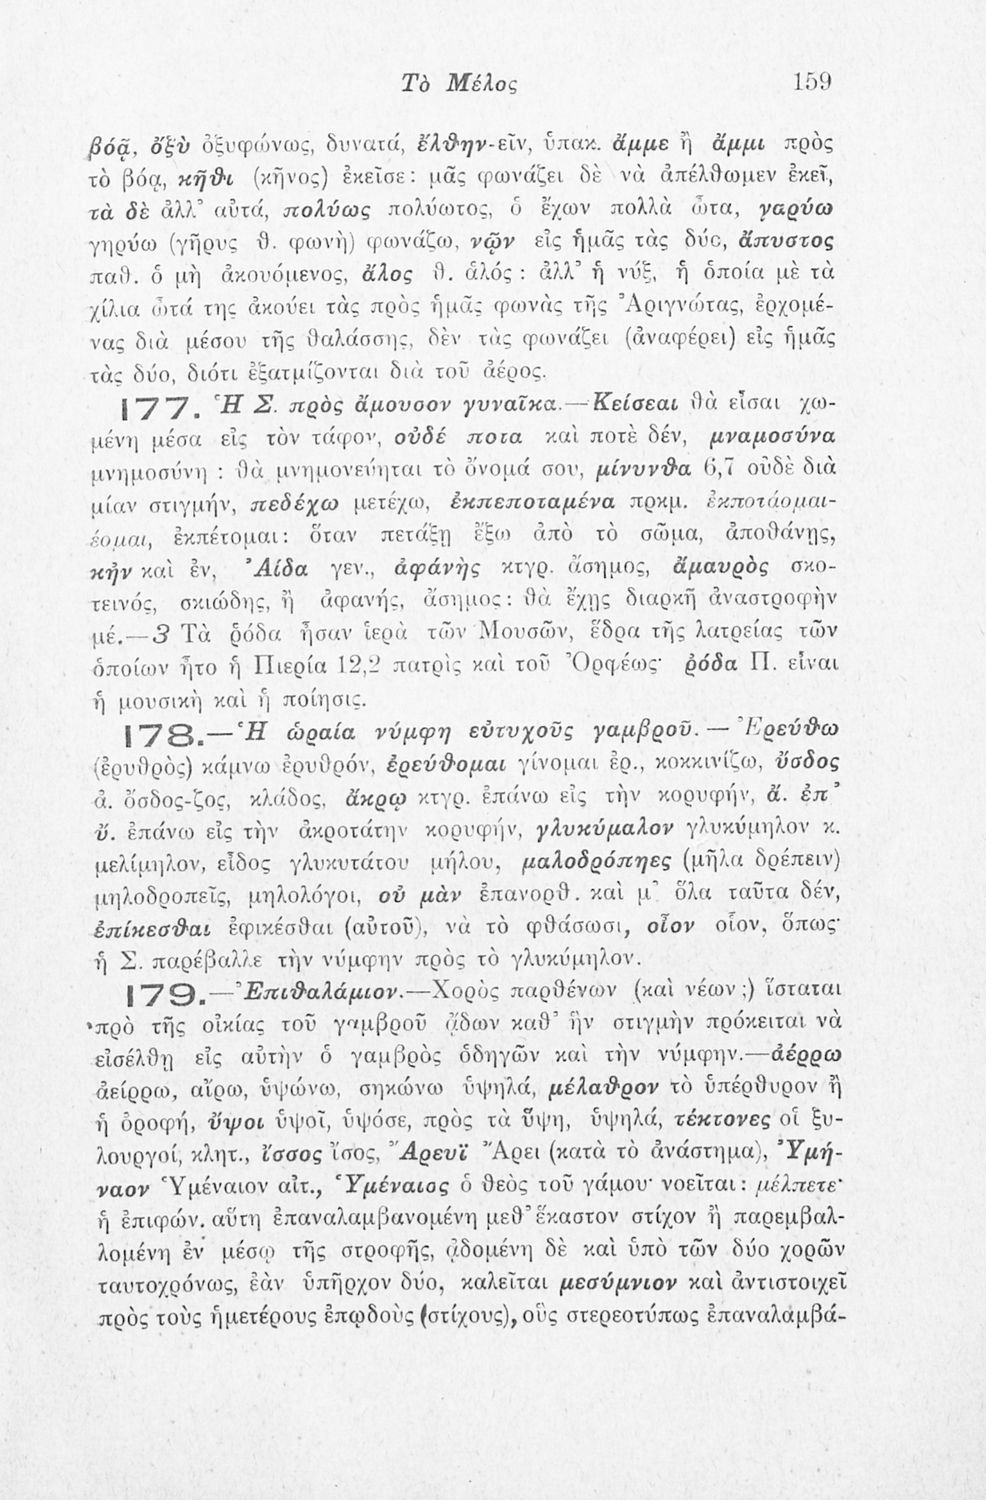 Τὸ Μέλος 159
βόᾳ, ὄξὺ ὀξυφώνως, δυνατά, ἔλθην-εῖν, ὑπακ. ἄμμε ἢ ἄμμι πρὸς
τὸ βόᾳ, κῆθι (κῆνος) ἐκεῖσε: μᾶς φωνάζει δὲ νὰ ἀπέλθωμεν ἐκεῖ,
τὰ δὲ ἀλλ' αὐτά, πολύως πολύωτος, ὁ ἔχων πολλὰ ὦτα, γαρύω
γηρύω (γῆρυς θ. φωνὴ) φωνάζω, νῷν εἰς ἡμᾶς τὰς δύο, ἄπυστος
παθ. ὁ μὴ ἀκουόμενος, ἄλος θ. ἁλός : ἀλλ' ἡ νύξ, ἡ ὁποία μὲ τὰ
χίλια ὦτά της ἀκούει τὰς πρὸς ἡμᾶς φωνὰς τῆς Ἀριγνώτας, ἐρχομέ-
νας διὰ μέσου τῆς θαλάσσης, δὲν τὰς φωνάζει (ἀναφέρει) εἰς ἡμᾶς
τὰς δύο, διότι ἐξατμίζονται διὰ τοῦ ἀέρος.
177. Ἡ Σ. πρὸς ἄμουσον γυναῖκα.—Κείσεαι θὰ εἶσαι χω-
μένη μέσα εἰς τὸν τάφον, οὐδέ ποτα καὶ ποτὲ δέν, μναμοσύνα
μνημοσύνη : θὰ μνημονεύηται τὸ ὄνομά σου, μίνυνθα 6,7 οὐδὲ διὰ
μίαν στιγμήν, πεδέχω μετέχω, ἐκπεποταμένα πρκμ. ἐκποτάομαι-
έομαι, ἐκπέτομαι: ὅταν πετάξῃ ἔξω ἀπὸ τὸ σῶμα, ἀποθάνῃς,
κἠν καὶ ἐν, Ἀίδα γεν., ἀφάνης κτγρ. ἄσημος, ἄμαυρὸς σκο-
τεινός, σκιώδης, ἢ ἀφανής, ἄσημος: θὰ ἔχῃς διαρκῆ ἀναστροφὴν
μέ.—3 Τὰ ῥόδα ἦσαν ἱερὰ τῶν Μουσῶν, ἕδρα τῆς λατρείας τῶν
ὁποίων ἦτο ἡ Πιερία 12,2 πατρὶς καὶ τοῦ Ὀρφέως· ῥόδα Π. εἶναι
ἡ μουσικὴ καὶ ἡ ποίησις.
178.—Ἡ ὡραία νύμφη εὐτυχοῦς γαμβροῦ. — Ἐρεύθω
(ἐρυθρὸς) κάμνω ἐρυθρόν, ἐρεύθομαι γίνομαι ἐρ., κοκκινίζω, ὔσδος
ἀ. ὄσδος-ζος, κλάδος, ἄκρῳ κτγρ. ἐπάνω εἰς τὴν κορυφήν, ἄ. ἐπ'
ὔ. ἐπάνω εἰς τὴν ἀκροτάτην κορυφήν, γλυκύμαλον γλυκύμηλον κ.
μελίμηλον, εἶδος γλυκυτάτου μήλου, μαλοδρόπηες (μῆλα δρέπειν)
μηλοδροπεῖς, μηλολόγοι, οὐ μὰν ἐπανορθ. καὶ μ' ὅλα ταῦτα δέν,
ἐπίκεσθαι ἐφικέσθαι (αὐτοῦ), νὰ τὸ φθάσωσι, οἶον οἷον, ὅπως·
ἡ Σ. παρέβαλλε τὴν νύμφην πρὸς τὸ γλυκύμηλον.
179.—Ἐπιθαλάμιον.—Χορὸς παρθένων (καὶ νέων ;) ἵσταται
πρὸ τῆς οἰκίας τοῦ γαμβροῦ ᾄδων καθ' ἣν στιγμὴν πρόκειται νὰ
εἰσέλθῃ εἰς αὐτὴν ὁ γαμβρὸς ὁδηγῶν καὶ τὴν νύμφην.—ἀέρρω
ἀείρρω, αἴρω, ὑψώνω, σηκώνω ὑψηλά, μέλαθρον τὸ ὑπέρθυρον ἢ
ἡ ὀροφή, ὔψοι ὑψοῖ, ὑψόσε, πρὸς τὰ ὕψη, ὑψηλά, τέκτονες οἱ ξυ-
λουργοί, κλητ., ἴσσος ἴσος, Ἄρευϊ Ἄρει (κατὰ τὸ ἀνάστημα), Ὑμή-
ναον Ὑμέναιον αἰτ., Ὑμέναιος ὁ θεὸς τοῦ γάμου· νοεῖται: μέλπετε·
ἡ ἐπιφών. αὕτη ἐπαναλαμβανομένη μεθ' ἕκαστον στίχον ἢ παρεμβαλ-
λομένη ἐν μέσῳ τῆς στροφῆς, ᾀδομένη δὲ καὶ ὑπὸ τῶν δύο χορῶν
ταυτοχρόνως, ἐὰν ὑπῆρχον δύο, καλεῖται μεσύμνιον καὶ ἀντιστοιχεῖ
πρὸς τοὺς ἡμετέρους ἐπῳδοὺς (στίχους), οὓς στερεοτύπως ἐπαναλαμβά-